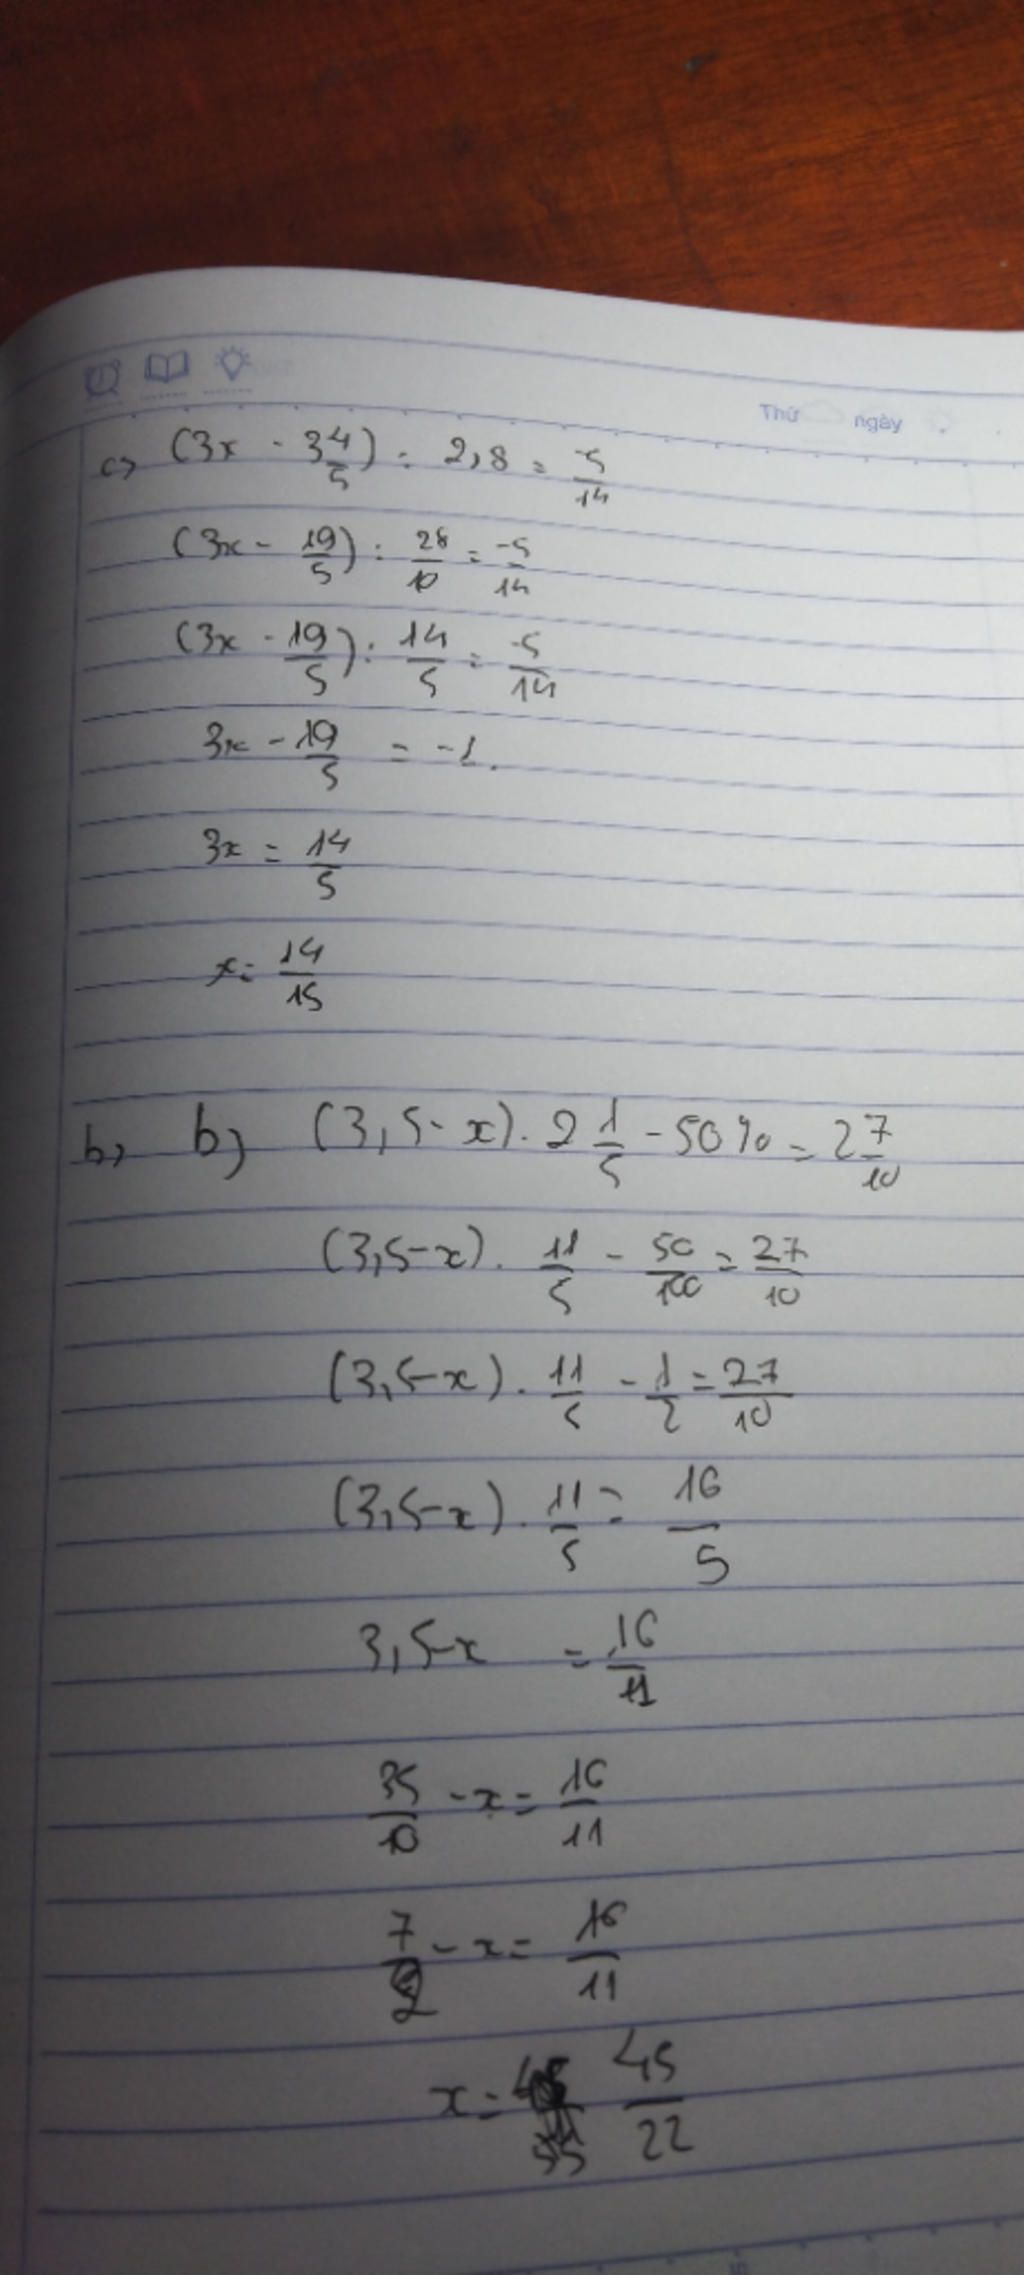 Thứ ngày
c) (3x - 3 4/5) : 2,8 = -5/14
(3x - 19/5) : 28/10 = -5/14
(3x - 19/5) : 14/5 = -5/14
3x - 19/5 = -1.
3x = 14/5
x = 14/15
b) b) (3,5 - x) . 2 1/5 - 50% = 2 7/10
(3,5 - x) . 11/5 - 50/100 = 27/10
(3,5 - x) . 11/5 - 1/2 = 27/10
(3,5 - x) . 11/5 = 16/5
3,5 - x = 16/11
35/10 - x = 16/11
7/2 - x = 16/11
x = 45/22